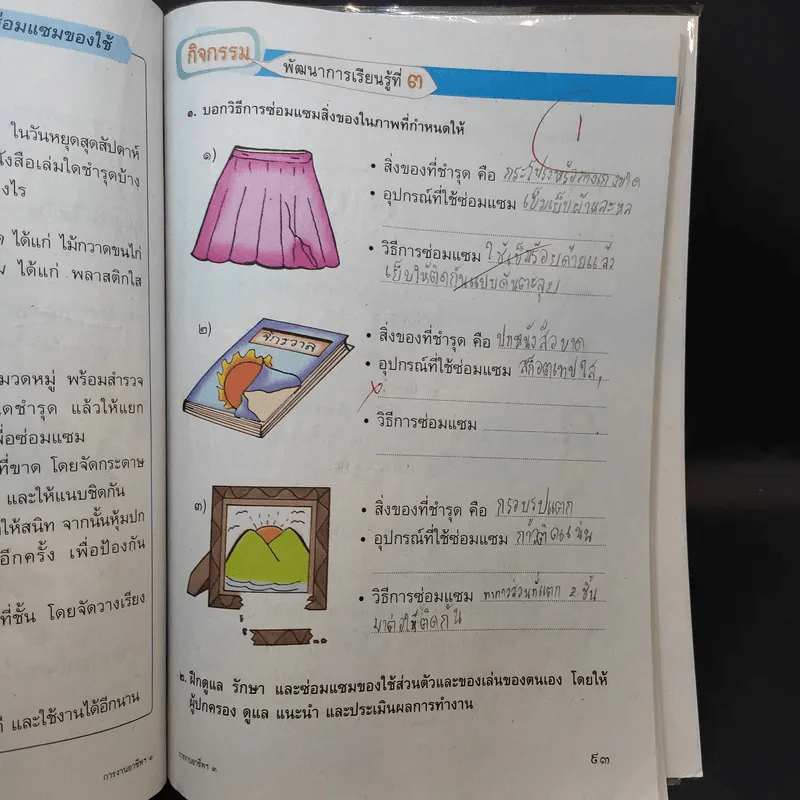 ซ่อมแซมของใช้
ในวันหยุดสุดสัปดาห์
หนังสือเล่มใดชำรุดบ้าง
ได้แก่ ไม้กวาดขนไก่
ได้แก่ พลาสติกใส
หมวดหมู่ พร้อมสำรวจ
ชำรุด แล้วให้แยก
เพื่อซ่อมแซม
ที่ขาด โดยจัดกระดาษ
และให้แนบชิดกัน
ให้สนิท จากนั้นหุ้มปก
อีกครั้ง เพื่อป้องกัน
ที่ชั้น โดยจัดวางเรียง
และใช้งานได้อีกนาน
การงานอาชีพฯ ๓
กิจกรรม
พัฒนาการเรียนรู้ที่ ๓
๑. บอกวิธีการซ่อมแซมสิ่งของในภาพที่กำหนดให้
1
๑)
• สิ่งของที่ชำรุด คือ กระโปรงหรือกางเกงขาด
• อุปกรณ์ที่ใช้ซ่อมแซม เข็มเย็บผ้าและหล
• วิธีการซ่อมแซม ใช้เข็มร้อยด้ายแล้ว
เย็บให้ติดกันแบบด้นตะลุย
๒)
จักรวาล
• สิ่งของที่ชำรุด คือ ปกหนังสือขาด
• อุปกรณ์ที่ใช้ซ่อมแซม สก็อตเทปใส,
• วิธีการซ่อมแซม
๓)
• สิ่งของที่ชำรุด คือ กรอบรูปแตก
• อุปกรณ์ที่ใช้ซ่อมแซม กาวติดแน่น
• วิธีการซ่อมแซม ทากาวส่วนที่แตก 2 ชิ้น
มาต่อให้ติดกัน
๒. ฝึกดูแล รักษา และซ่อมแซมของใช้ส่วนตัวและของเล่นของตนเอง โดยให้
ผู้ปกครอง ดูแล แนะนำ และประเมินผลการทำงาน
การงานอาชีพฯ ๓
๙๓